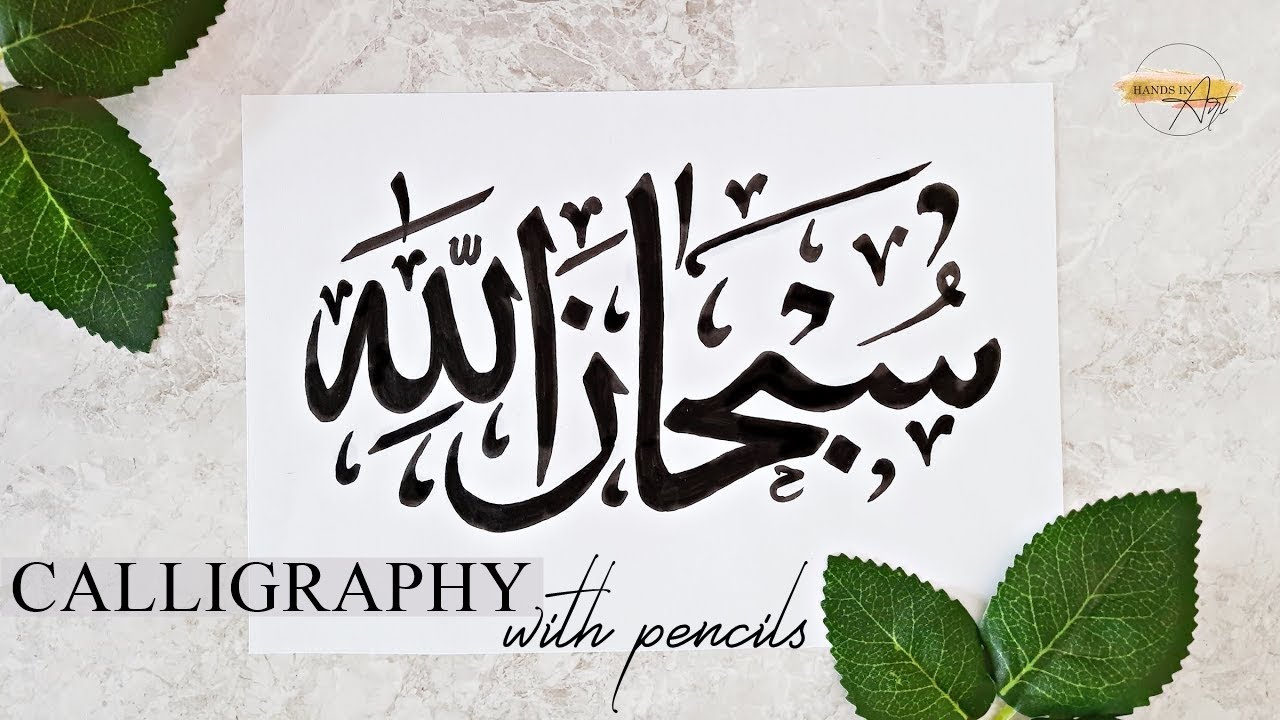 HANDS IN Art
سُبْحَانَ اللَّهِ
CALLIGRAPHY
with pencils